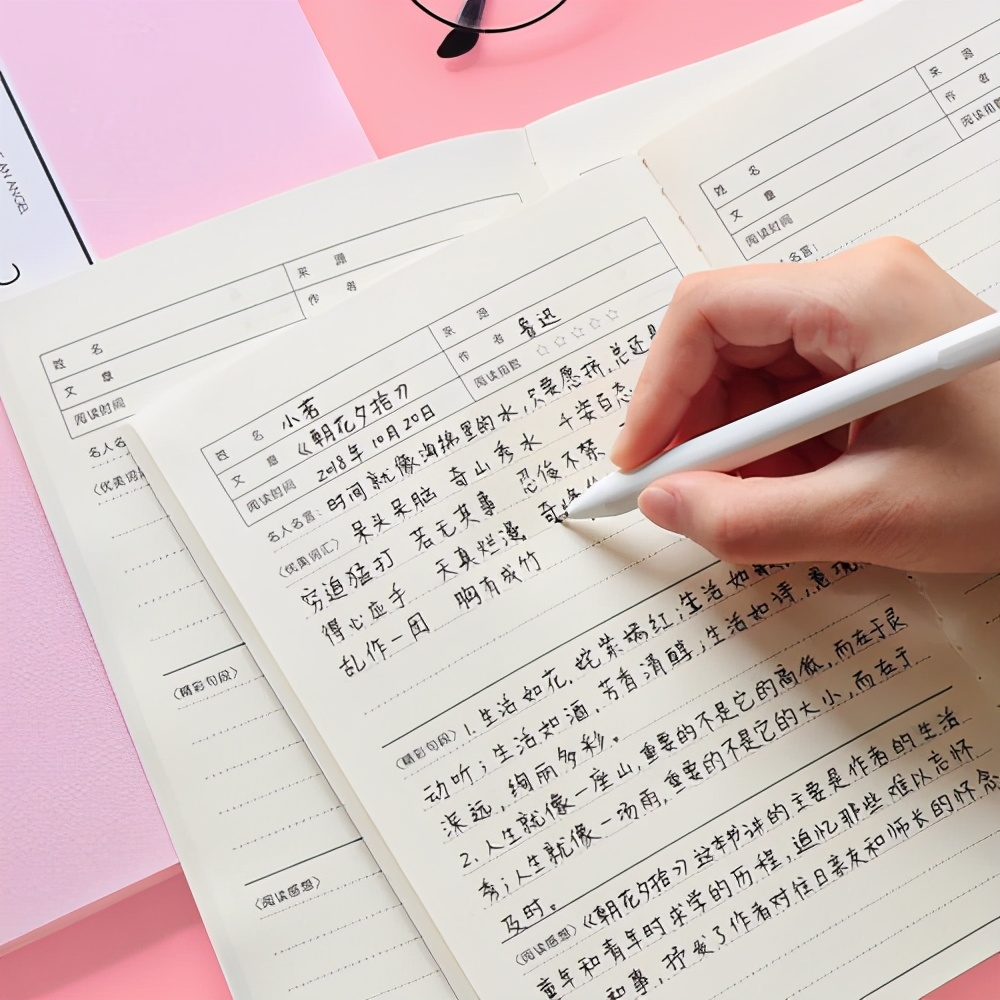 AN ANGEL
姓 名
文 章
阅读时间
来 源
作 者
名人名
〈优美词
〈精彩句段〉
〈阅读感想〉
姓 名 小茗
文 章 《朝花夕拾》
阅读时间 2018年10月20日
来 源
作 者 鲁迅
阅读指数 ☆☆☆☆☆
名人名言: 时间就像海绵里的水,只要愿挤,总还是
〈优美词汇〉 呆头呆脑 奇山秀水 千姿百态
穷追猛打 若无其事 忍俊不禁
得心应手 天真烂漫 奇峰
乱作一团 胸有成竹
〈精彩句段〉 1.生活如花,姹紫嫣红;生活如歌
动听;生活如酒,芳香清醇;生活如诗,意境
深远,绚丽多彩。
2.人生就像一座山,重要的不是它的高低,而在于灵
秀;人生就像一场雨,重要的不是它的大小,而在于
及时。
〈阅读感想〉 《朝花夕拾》这本书讲的主要是作者的生活
童年和青年时求学的历程,追忆那些难以忘怀
和事,抒发了作者对往日亲友和师长的怀念
姓 名
文 章
阅读时间
来 源
作 者
阅读指数
名人名言: